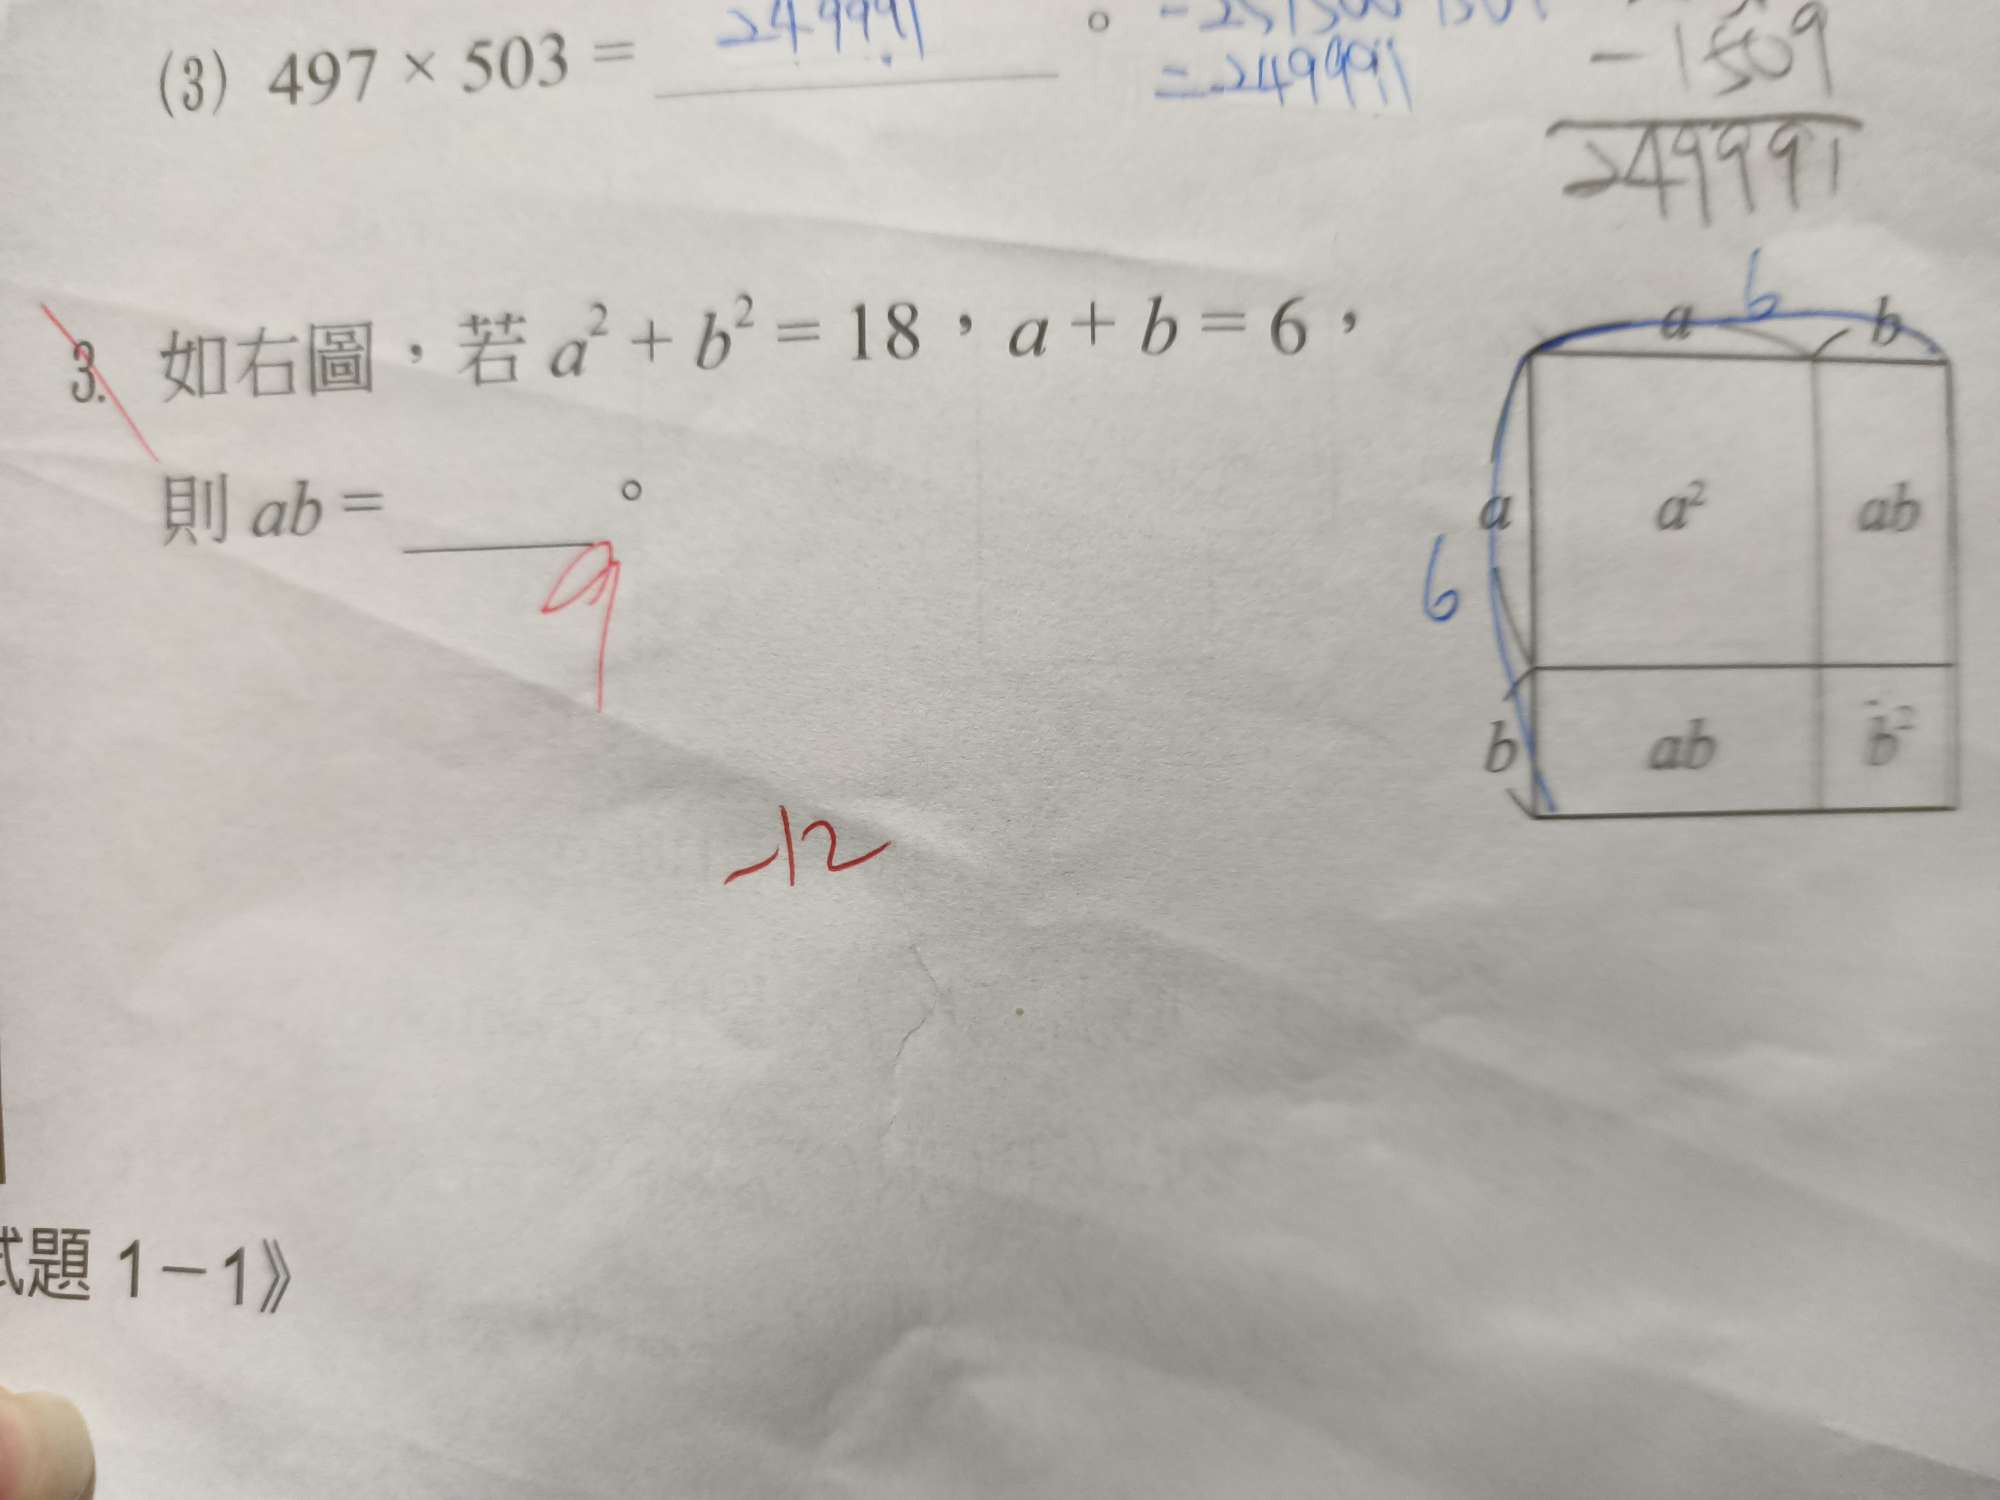 (3) 497 × 503 = 249991 。
= 249991
- 1509
249991
3. 如右圖，若 a² + b² = 18，a + b = 6，
則 ab = 。
9
-12
6
a b
a a² ab
6
b ab b²
試題 1－1》